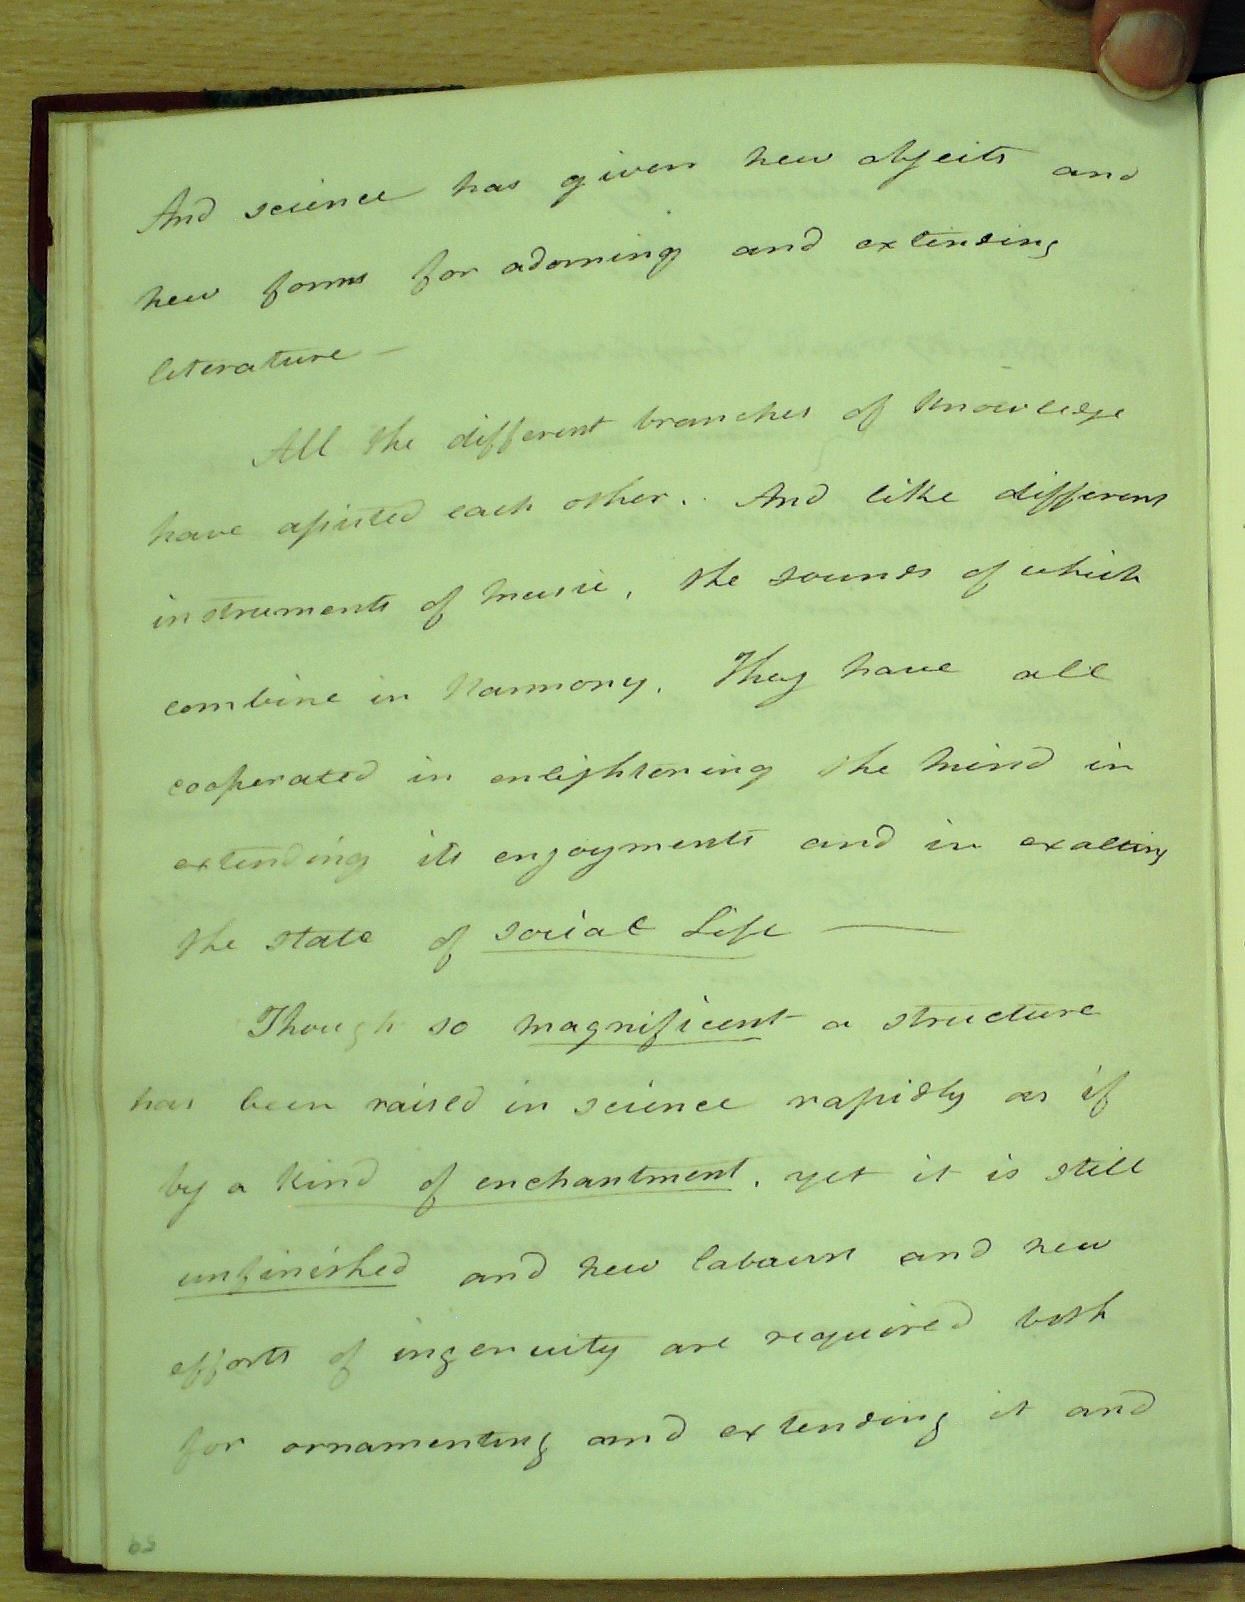 And science has given new objects and
new forms for adorning and extending
literature —
All the different branches of knowledge
have assisted each other. And like different
instruments of music, the sounds of which
combine in Harmony. They have all
cooperated in enlightening the Mind in
extending its enjoyments and in exalting
the state of social Life —
Though so magnificent a structure
has been raised in science rapidly as if
by a kind of enchantment, yet it is still
unfinished and new labours and new
efforts of ingenuity are required both
for ornamenting and extending it and